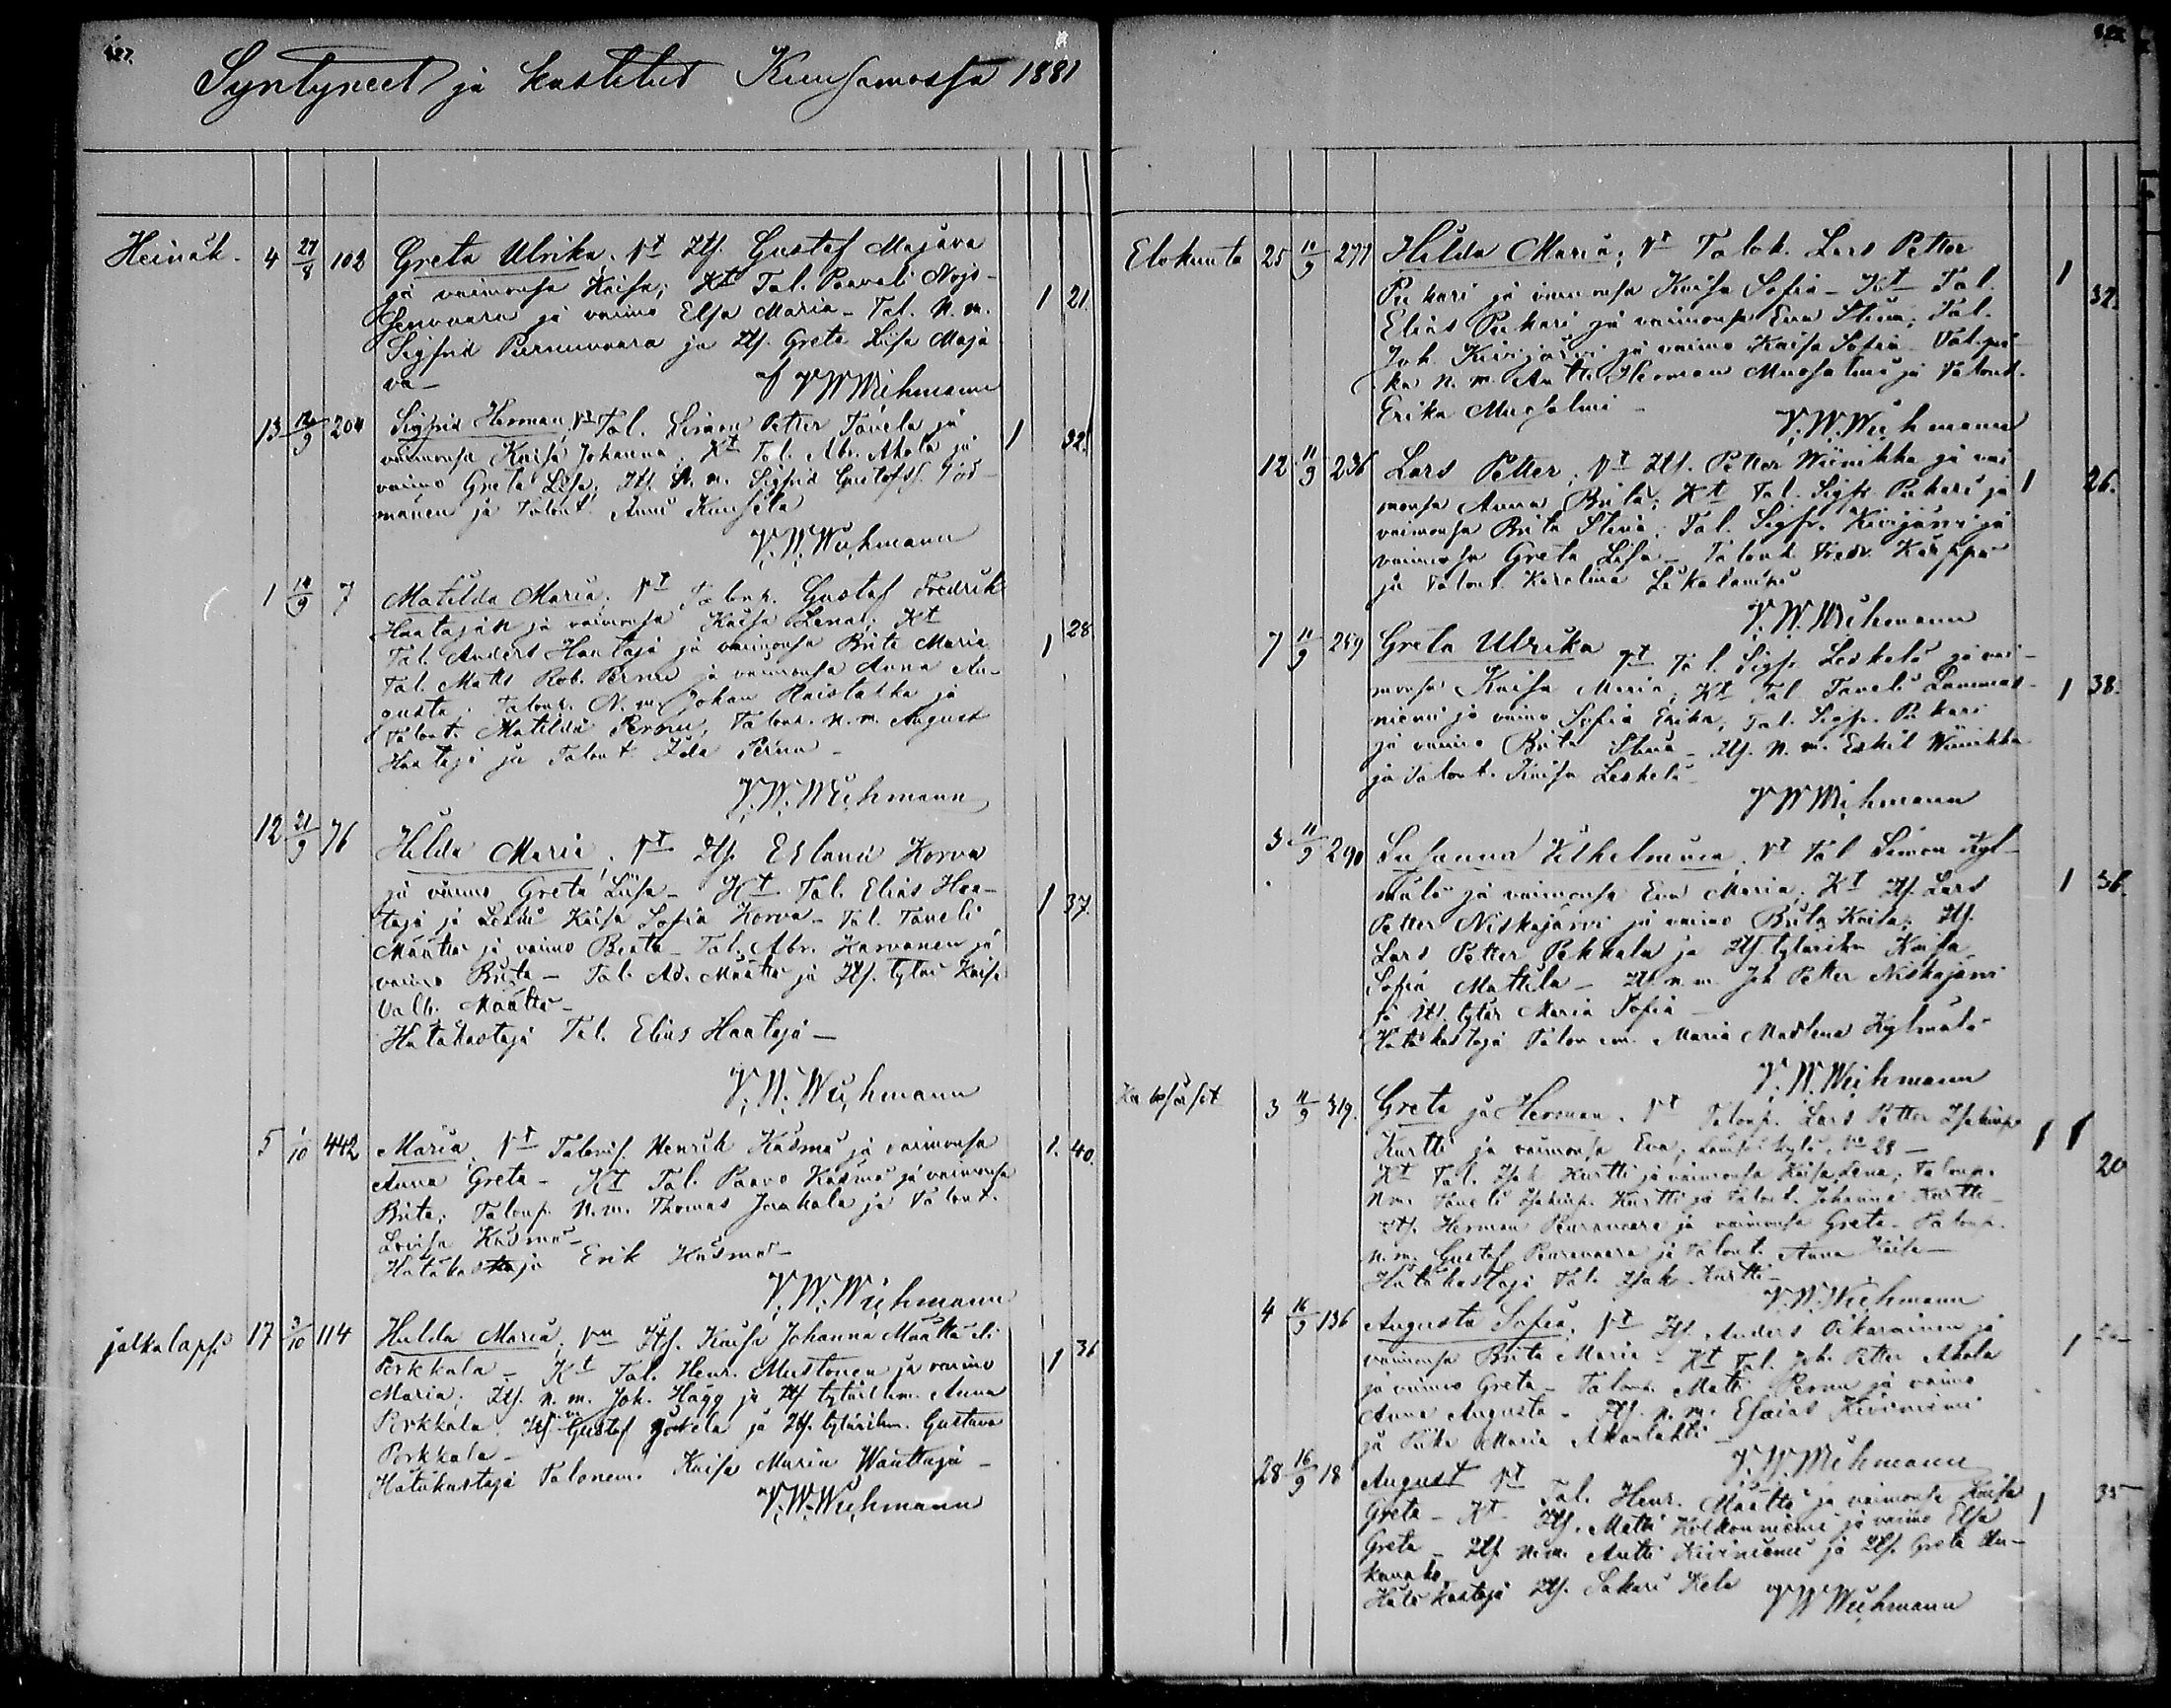 427.
Syntyneet ja kastetut Kuusamossa 1881
Heinäk. 4 27/8 102 Greta Ulrika, Vt Itf. Gustaf Majava
ja vaimonsa Kaisa; Kt Tal. Paavali Nojo-
senvaara ja vaimo Elsa Maria - Tal. N. m.
1 21.
Sigfrid Purnuvaara ja Itf. Greta Lisa Maja
va -
af V W Wichmann
13 12/9 204 Sigfrid Herman, Vt Tal. Simon Petter Tavela ja
vaimonsa Kaisa Johanna, Kt Tal. Abr. Akola ja
1 32.
vaimo Greta Lisa; Itf. N. m. Sigfrid Gustafss.
mänen ja Talont. Anni Kuusela
V. W. Wichmann
1 14/9 7 Matilda Maria, Vt Talonp. Gustaf Fredrik
Haatajan ja vaimonsa Kaisa Lena; Kt
Tal. Anders Haataja ja vaimonsa Brita Maria
1 28.
Tal. Matts Rob. Pernu ja vaimonsa Anna Au-
gusta. Talonp. N. m. Johan Raistakka ja
Talont. Matilda Pernu, Talonp. n. m. August
Haataja ja Talont. Ida Pernu -
V. W. Wichmann
12 21/9 76 Hilda Maria, Vt Itf. Eslani Korva
ja vaimo Greta Liisa - Kt Tal. Elias Haa-
taja ja Leski Kaisa Sofia Korva - Tal. Taneli
1 37.
Määttä ja vaimo Beata - Tal. Abr. Karvonen ja
vaimo Brita - Tal. Ad. Määttä ja Itf. tytär Kaisa
Valb. Määttä -
Hätäkastaja Tal. Elias Haataja -
V. W. Wichmann
5 1/10 442 Maria, Vt Talonis. Henrik Käsmä ja vaimonsa
Anna Greta - Kt Tal. Paavo Käsmä ja vaimonsa
1. 40.
Brita; Talonp. N. m. Thomas Jaakola ja Talont.
Lovisa Käsmä -
Hätäkastaja Erik Käsmä -
V. W. Wichmann
jalkalapsi 17 3/10 114 Hulda Maria, Vn Itf. Kaisa Johanna Määttä eli
Porkkala - Kt Tal. Henr. Mustonen ja vaimo
1 36
Maria; Itf. N. m. Joh. Hägg ja Itf tytärihm. Anna
Porkkala. Itf Gustaf ja Itf. tytärihm. Gustava
Porkkala -
Hätäkastaja Talonem. Kaisa Maria Wanttaja -
V. W. Wichmann
Elokuuta 25 10/9 277 Hilda Maria; Vt Talok. Lars Petter
Pukari ja vaimonsa Kaisa Sofia - Kt Tal.
1 32.
Elias Pukari ja vaimonsa Eva Stina; Tal.
Joh. Kivijärvi ja vaimo Kaisa Sofia
N. m. Antti Herman Mursalmi ja Talont.
Erika Mursalmi -
V. W. Wichmann
12 11/9 236 Lars Petter, Vt Itf. Petter Wiinikka ja vai
monsa Anna Brita; Kt Tal. Sigfr. Pukari ja
1 26.
vaimonsa Brita Stina; Tal. Sigfr. Kivijärvi ja
vaimonsa Greta Lisa - Talont. Fredr. Karppa
ja Talont. Karolina
V. W. Wichmann
7 11/9 259 Greta Ulrika Vt Tal. Sigfr. Leskelä ja vai-
monsa Kaisa Maria; Kt Tal. Taneli Lammas-
1 38.
niemi ja vaimo Sofia Erika, Tal. Sigfr. Pukari
ja vaimo Brita Stina - Itf. N. m. Eskil Wiinikka
ja Talont. Kaisa Leskelä -
V W Wichmann
3 11/9 290 Susanna Vilhelmina, Vt Tal Simon Kyl-
mälä ja vaimonsa Eva Maria; Kt Itf. Lars
1 36.
Petter Niskajärvi ja vaimo Brita Kaisa; Itf.
Lars Petter Pekkala ja Itf. tytärihm Kaisa
Sofia Mattila - Itf. n. m. Joh Petter Niskajärvi
ja Itf. tytär Maria Sofia -
Hätäkastaja Talonem. Maria Madlena Kylmälä
V. W. Wichmann
Kaksoiset 3 11/9 319. Greta ja Herman, Vt Talonp. Lars Petter Isakinp.
Kurtti ja vaimonsa Eva, kylä, No 28 -
1 1
Kt Tal. Isak Kurtti ja vaimonsa Kaisa Lena; Talonp.
20
N. m. Taneli Isakinp. Kurtti ja Talont. Johanna Kurtti -
Itf. Herman Peuravaara ja vaimonsa Greta - Talonp.
n. m. Gustaf Peuravaara ja Talont. Anna Kaisa -
Hätäkastaja Tal. Isak Kurtti -
V. W. Wichmann
4 16/9 136 Augusta Sofia, Vt Itf. Anders Oikarainen ja
vaimonsa Brita Maria - Kt Tal. Joh. Petter Akola
1
ja vaimo Greta - Talonp. Matti Pernu ja vaimo
Anna Augusta - Itf. n. m. Esaias Kiviniemi
ja Piika Maria Akanlahti -
V. W. Wichmann
28 16/9 18 August Vt Tal. Henr. Määttä ja vaimonsa Kaisa
Greta - Kt Itf. Matti Kolkonniemi ja vaimo Elsa
1 35
Greta - Itf N. m. Antti Kiviniemi ja Itf. Greta
Hätäkastaja Itf. Sakari Kela
V W Wichmann